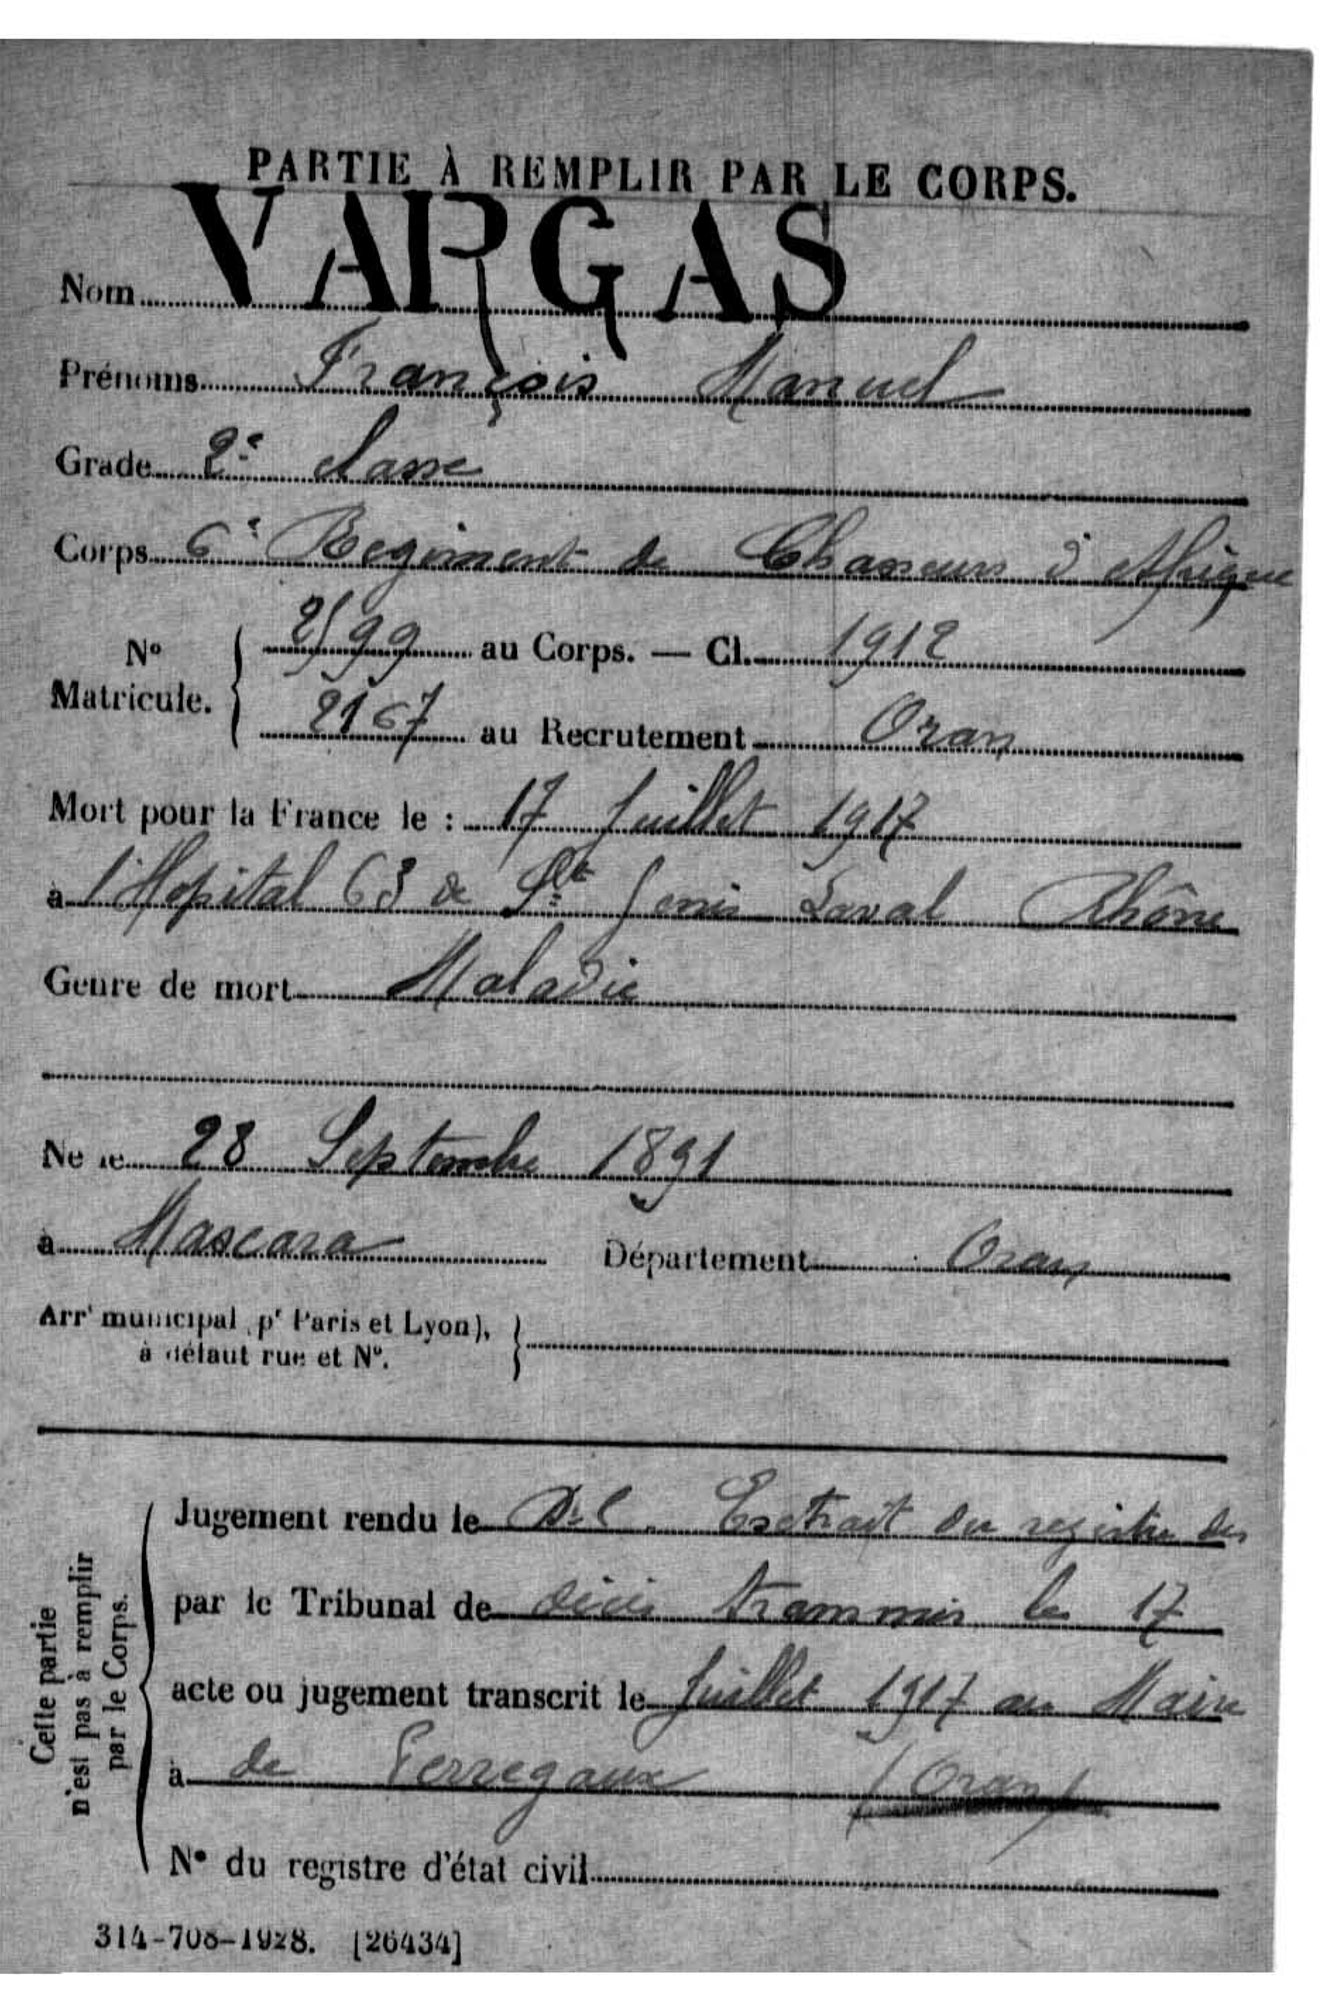 PARTIE À REMPLIR PAR LE CORPS.
Nom VARGAS
Prénoms François Manuel
Grade 2e classe
Corps 6e Regiment de Chasseurs d'Afrique
N° Matricule. 2599 au Corps. — Cl. 1912
2167 au Recrutement Oran
Mort pour la France le : 17 Juillet 1917
à l'Hopital 63 de St Genis Laval Rhône
Genre de mort Maladie
Né le 28 Septembre 1891
à Mascara Département Oran
Arrt municipal (pr Paris et Lyon),
à défaut rue et N°.
Cette partie
n'est pas à remplir
par le Corps.
Jugement rendu le Extrait du registre des
par le Tribunal de décès transmis le 17
acte ou jugement transcrit le Juillet 1917 au Maire
à de Perregaux (Oran)
N° du registre d'état civil
314-708-1928. [26434]